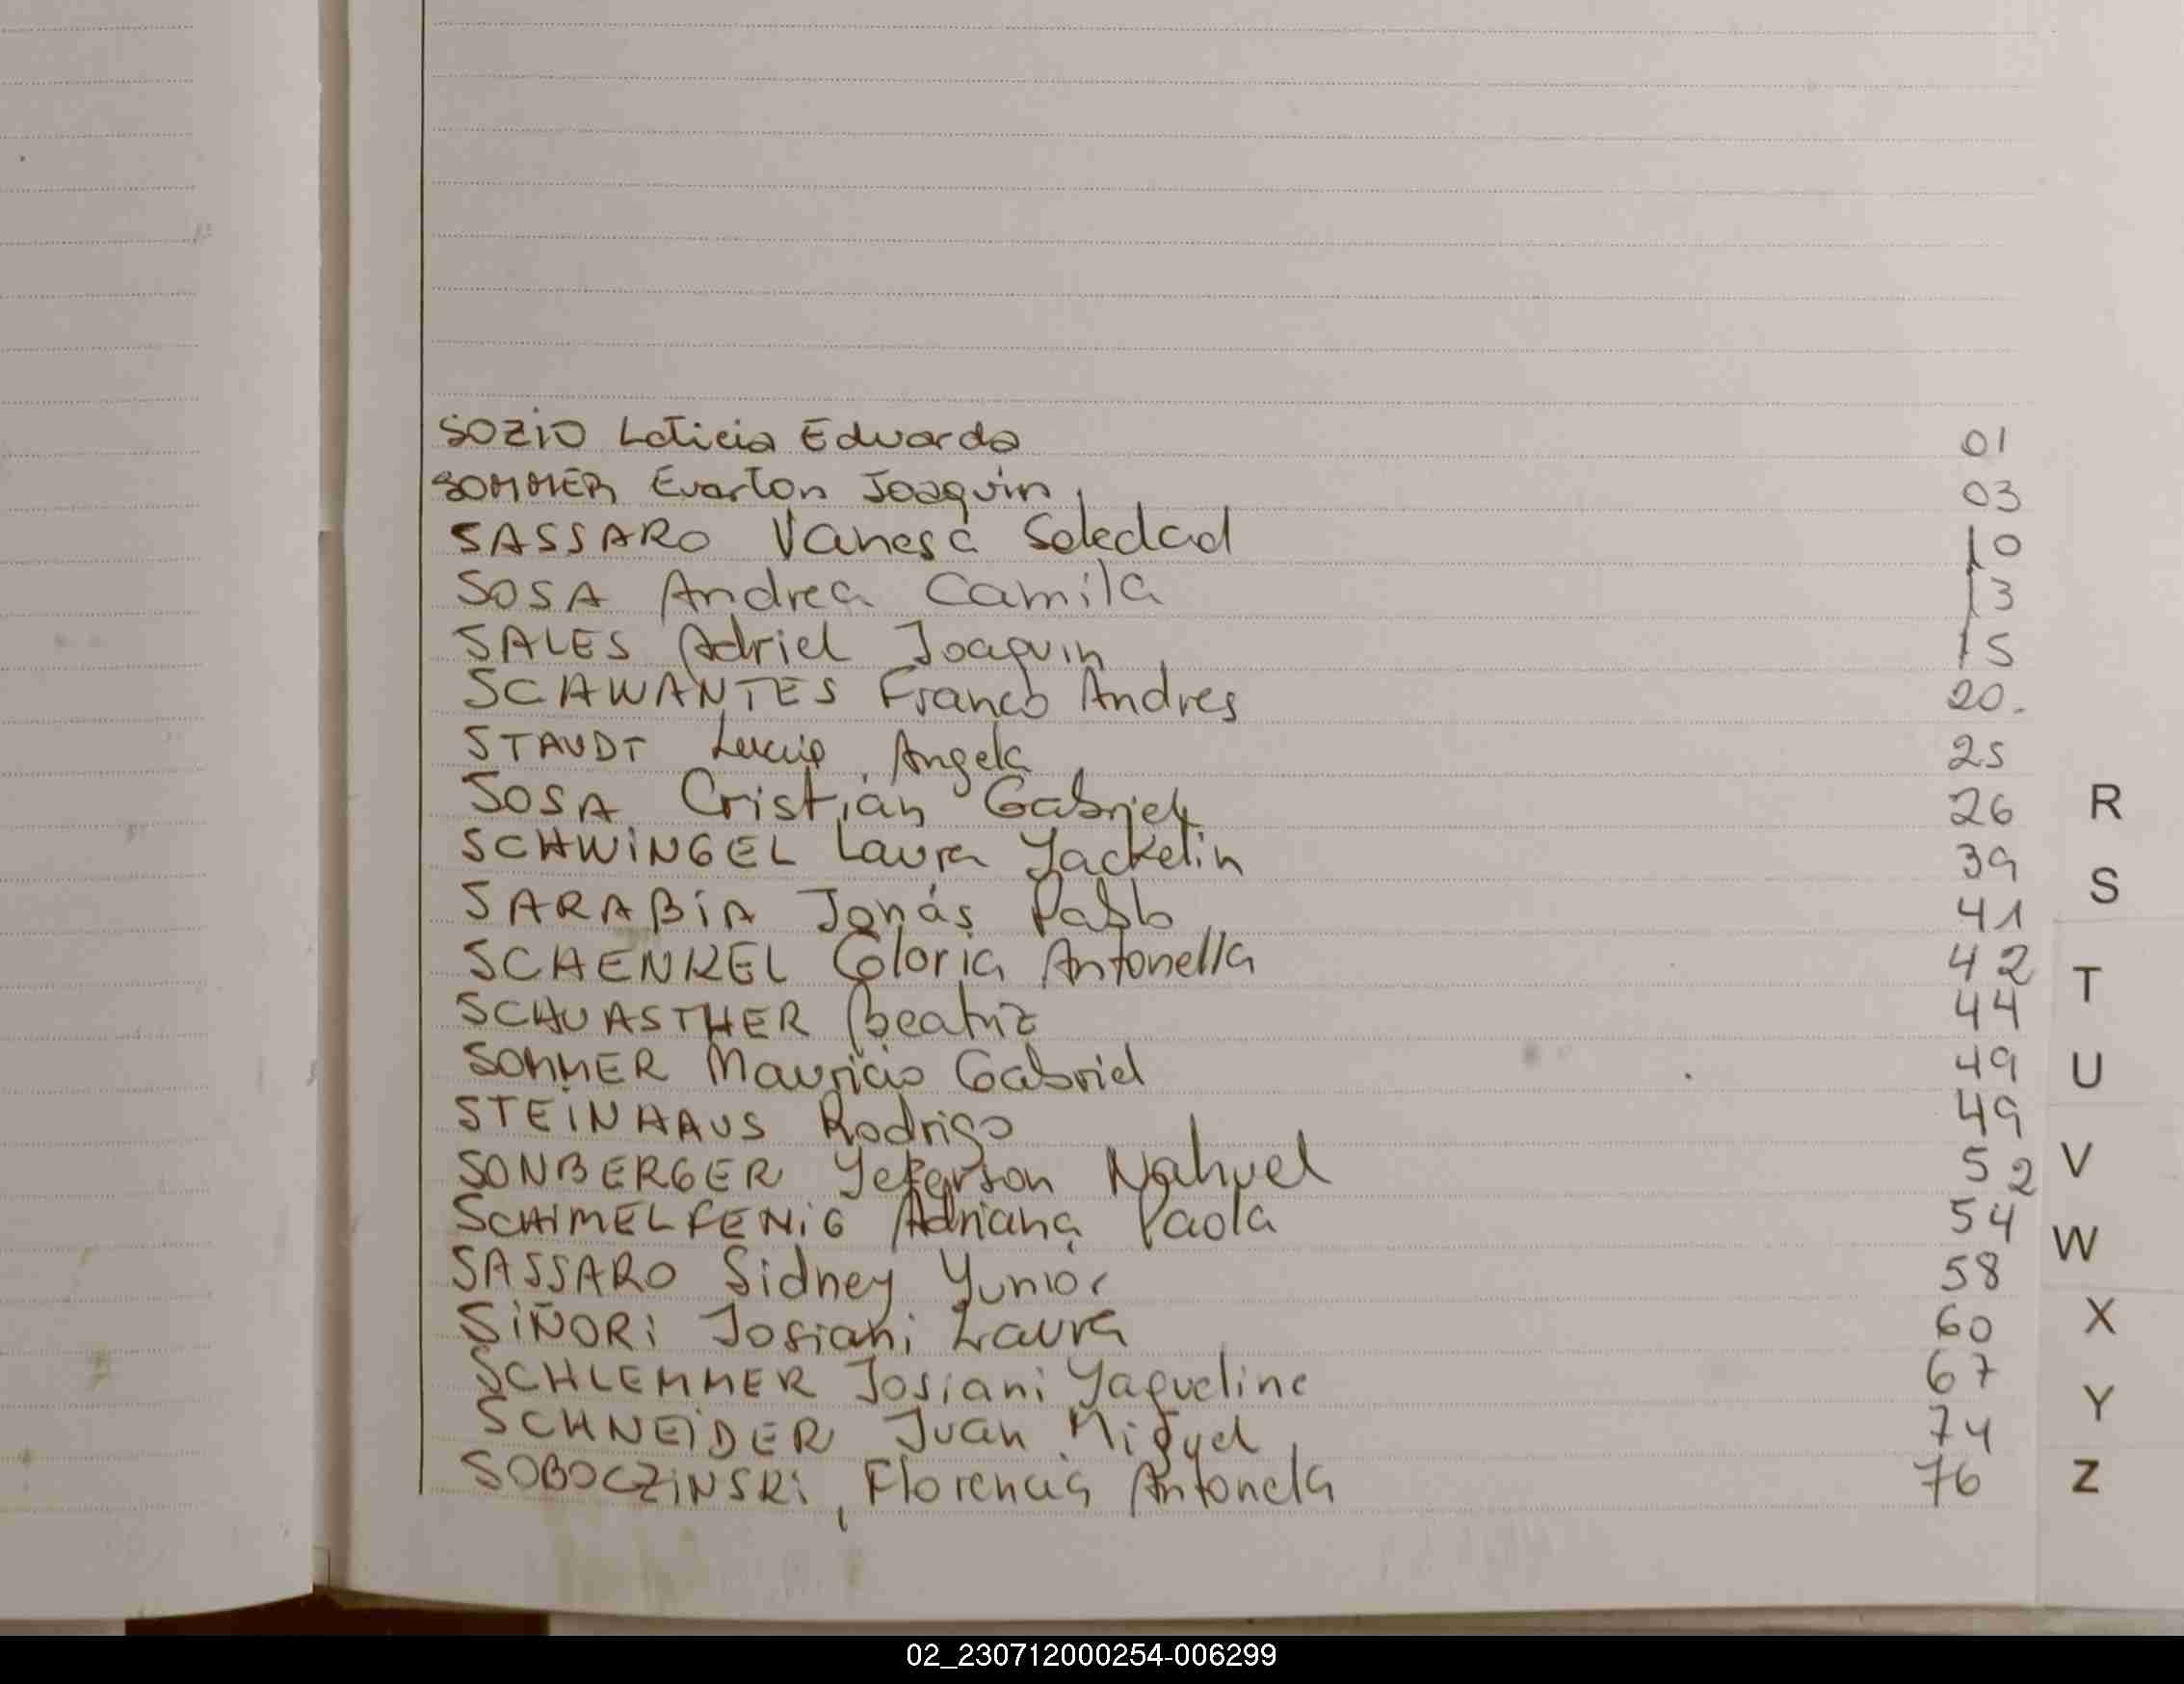 SOZiO Leticia Eduarda 01
SOMMER Everton Joaquin 03
SASSARO Vanesa Soledad 10
SOSA Andrea Camila 13
SALES Adriel Joaquin 15
SCAWANTES Franco Andres 20.
STAUDT Lucia Angela 25
SOSA Cristian Gabriel 26
SCHWiNGEL Laura Yackelin 39
SARABiA Jonás Pablo 41
SCHENKEL Gloria Antonella 42
SCHUASTHER Beatriz 44
SOMMER Mauricio Gabriel 49
STEiNHAUS Rodrigo 49
SONBERGER Yeferson Nahuel 52
SCHiMELFENiG Adriana Paola 54
SASSARO Sidney Yunior 58
SiÑORi Josiani Laura 60
SCHLEMMER Josiani Yaqueline 67
SCHNEiDER Juan Miguel 74
SOBOCZiNSKi Florencia Antonela 76
R
S
T
U
V
W
X
Y
Z
02_230712000254-006299